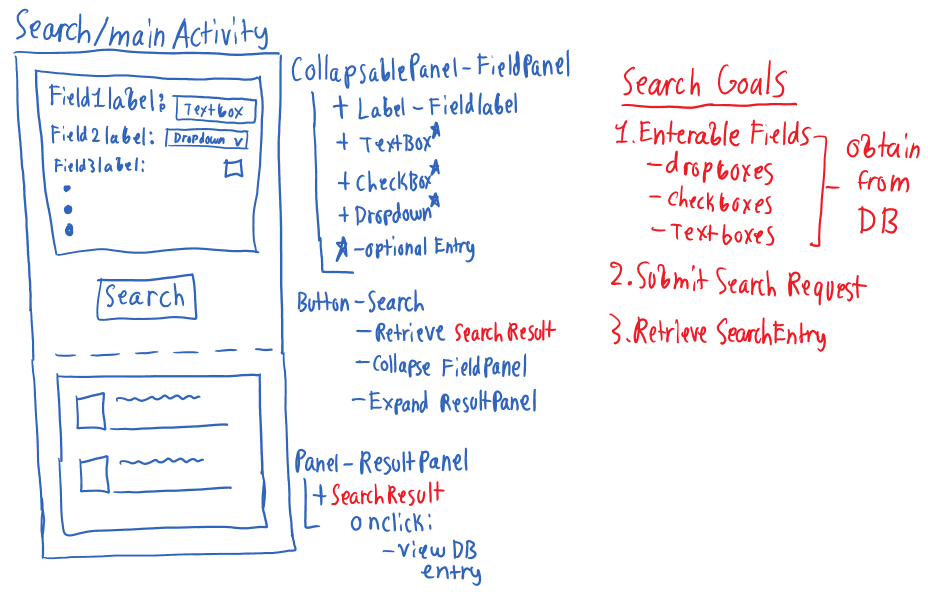 Search/main Activity
Field1label:
Textbox
Field2label:
Dropdown v
Field3label:
Search
CollapsablePanel-FieldPanel
+ Label - Fieldlabel
+ TextBox*
+ CheckBox*
+ Dropdown*
* - optional Entry
Button-Search
- Retrieve SearchResult
- Collapse FieldPanel
- Expand ResultPanel
Panel-ResultPanel
+ SearchResult
onclick:
- view DB
entry
Search Goals
1. Enterable Fields
- dropboxes
- checkboxes
- Textboxes
obtain
from
DB
2. Submit Search Request
3. Retrieve SearchEntry